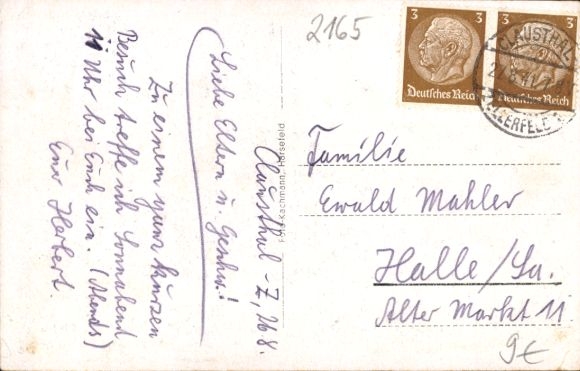 2165
3
3
Deutsches Reich
Deutsches Reich
CLAUSTHAL
ZELLERFELD
Clausthal-Z, 26 8.
Liebe Eltern u. Geschw.!
Zu einem ganz kurzen
Besuch treffe ich Sonnabend
11 Uhr bei Euch ein. (Abends)
Euer Herbert.
Foto-Kachmann, Harsefeld
Familie
Ewald Mahler
Halle/Sa.
Alter Markt 11
9€